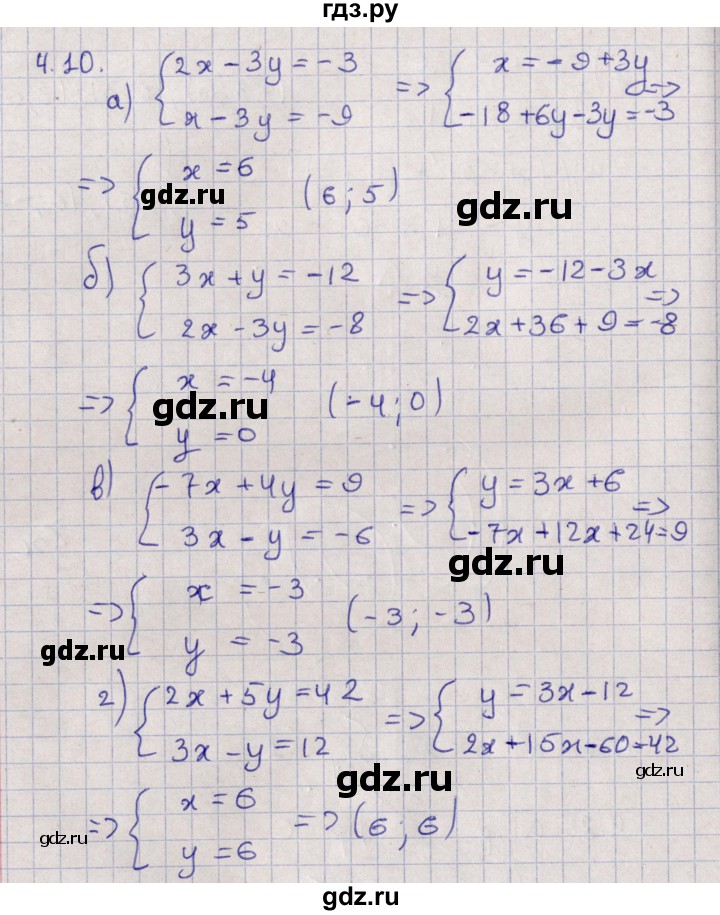 гдз.ру
4.10.
а) { 2x - 3y = -3
x - 3y = -9
=> { x = -9 + 3y
-18 + 6y - 3y = -3 =>
=> { x = 6
y = 5
(6; 5)
gdz.ru
gdz.ru
б) { 3x + y = -12
2x - 3y = -8
=> { y = -12 - 3x
2x + 36 + 9 = -8 =>
=> { x = -4
y = 0
(-4; 0)
gdz.ru
в) { -7x + 4y = 9
3x - y = -6
=> { y = 3x + 6
-7x + 12x + 24 = 9 =>
gdz.ru
=> { x = -3
y = -3
(-3; -3)
gdz.ru
г) { 2x + 5y = 42
3x - y = 12
=> { y = 3x - 12
2x + 15x - 60 = 42 =>
gdz.ru
=> { x = 6
y = 6
=> (6; 6)
gdz.ru
gdz.ru
gdz.ru